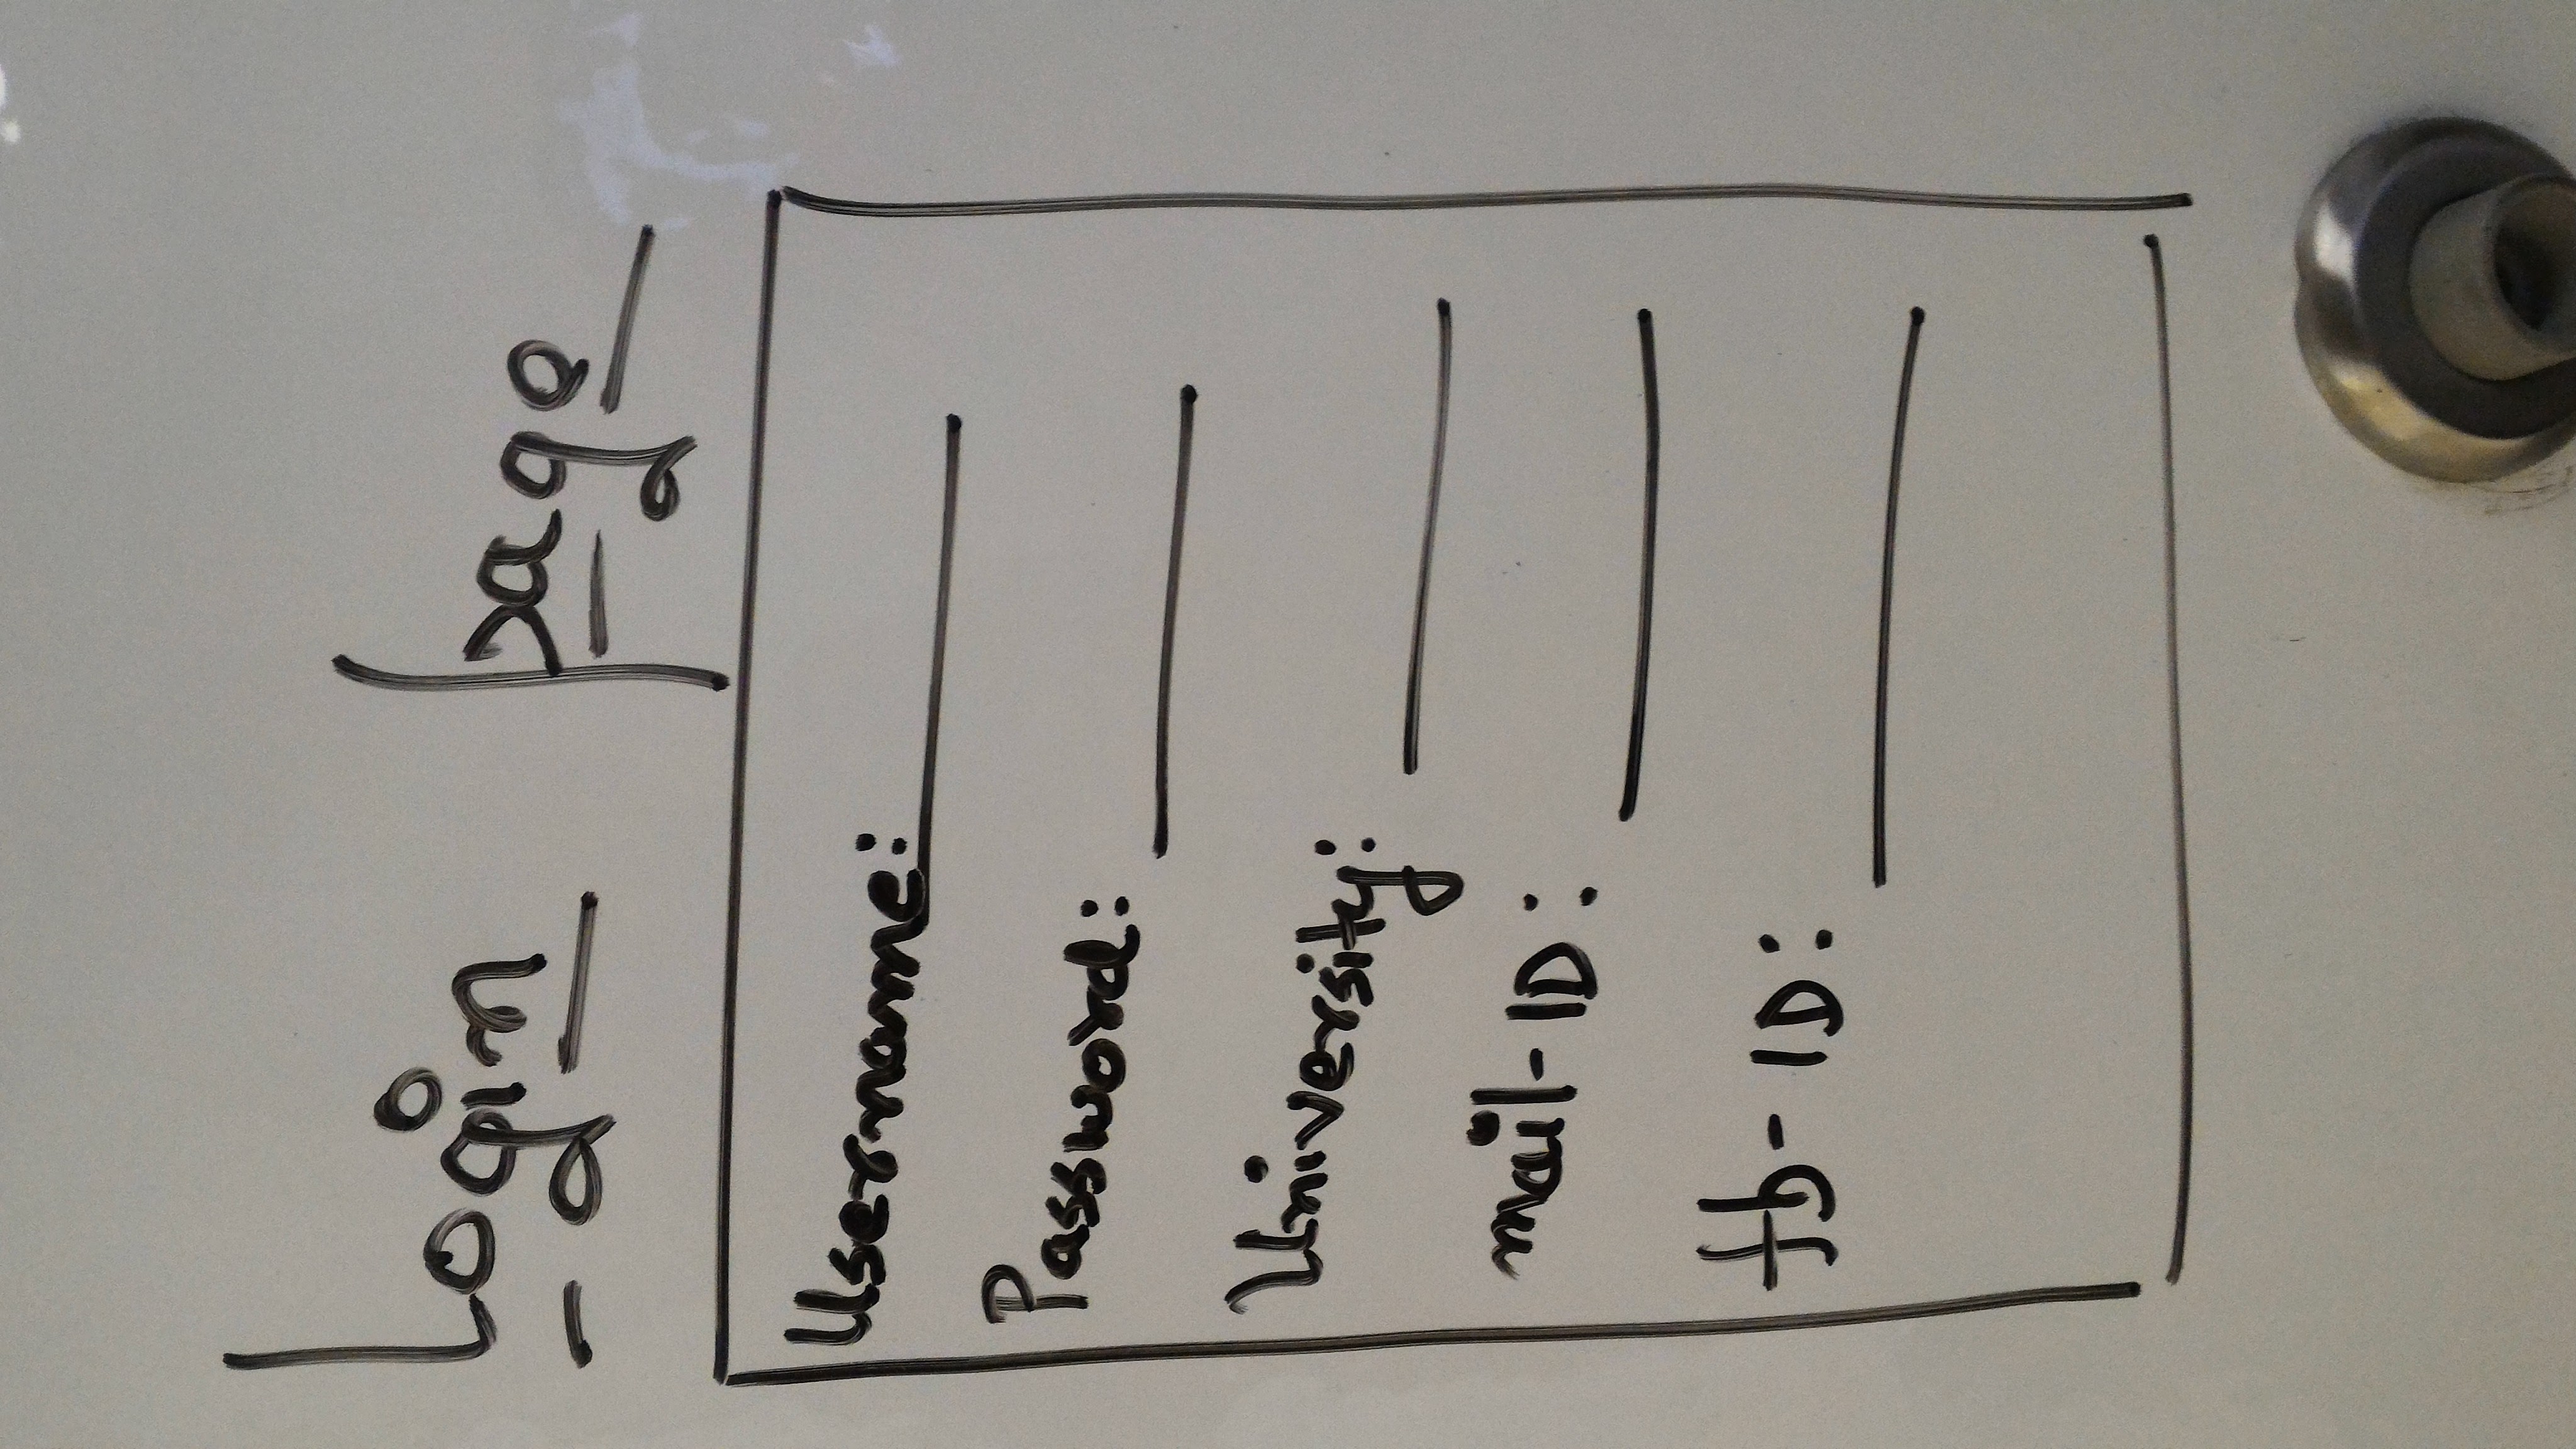 Login page
Username:
Password:
University:
mail-ID:
fb-ID: